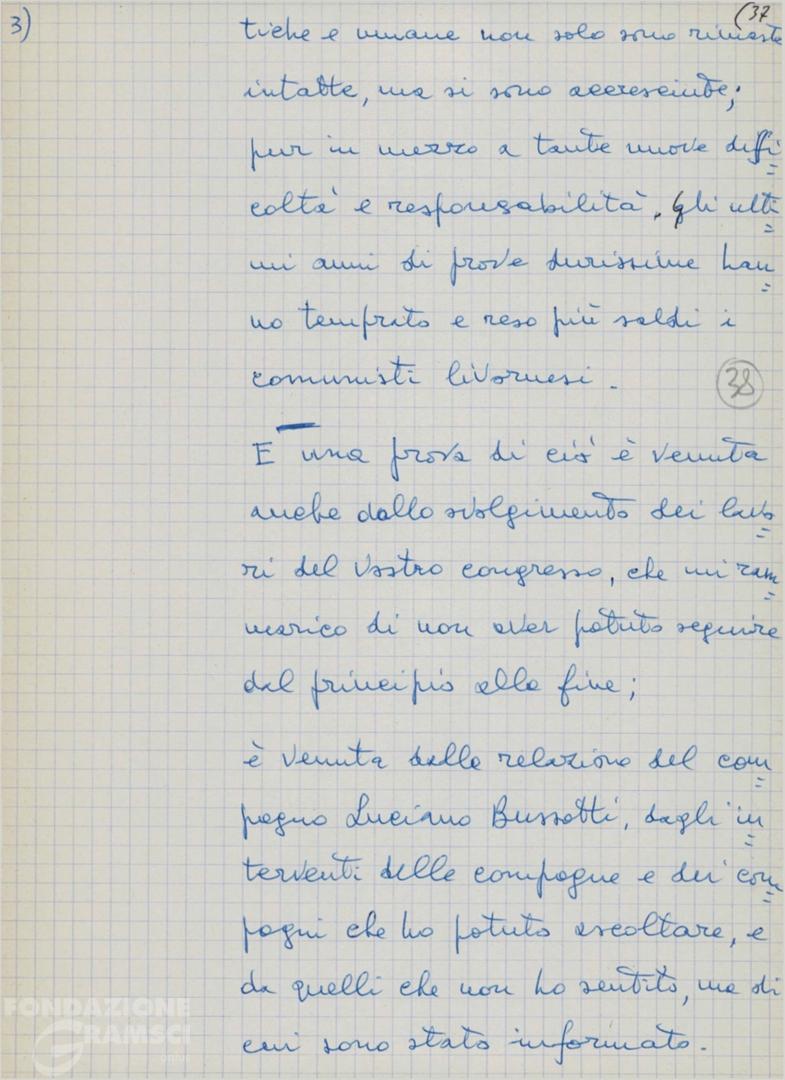 3)
(37
tiche e umane non solo sono rimaste
intatte, ma si sono accresciute;
pur in mezzo a tante nuove diffi=
coltà e responsabilità. Gli ulti=
mi anni di prove durissime han=
no temprato e reso più saldi i
comunisti livornesi.
38
E una prova di ciò è venuta
anche dallo svolgimento dei lavo=
ri del vostro congresso, che mi ram=
marico di non aver potuto seguire
dal principio alla fine;
è venuta dalla relazione del com=
pagno Luciano Bussotti, dagli in=
terventi delle compagne e dei com=
pagni che ho potuto ascoltare, e
da quelli che non ho sentito, ma di
cui sono stato informato.
FONDAZIONE
GRAMSCI